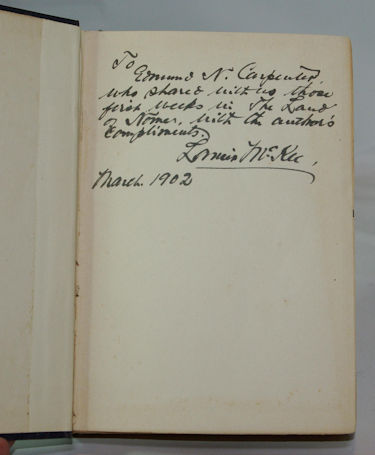 To
Edmund N. Carpenter,
who shared with us those
first weeks in The Land
of Nome, with the author's
compliments.
Lanier McKee,
March 1902